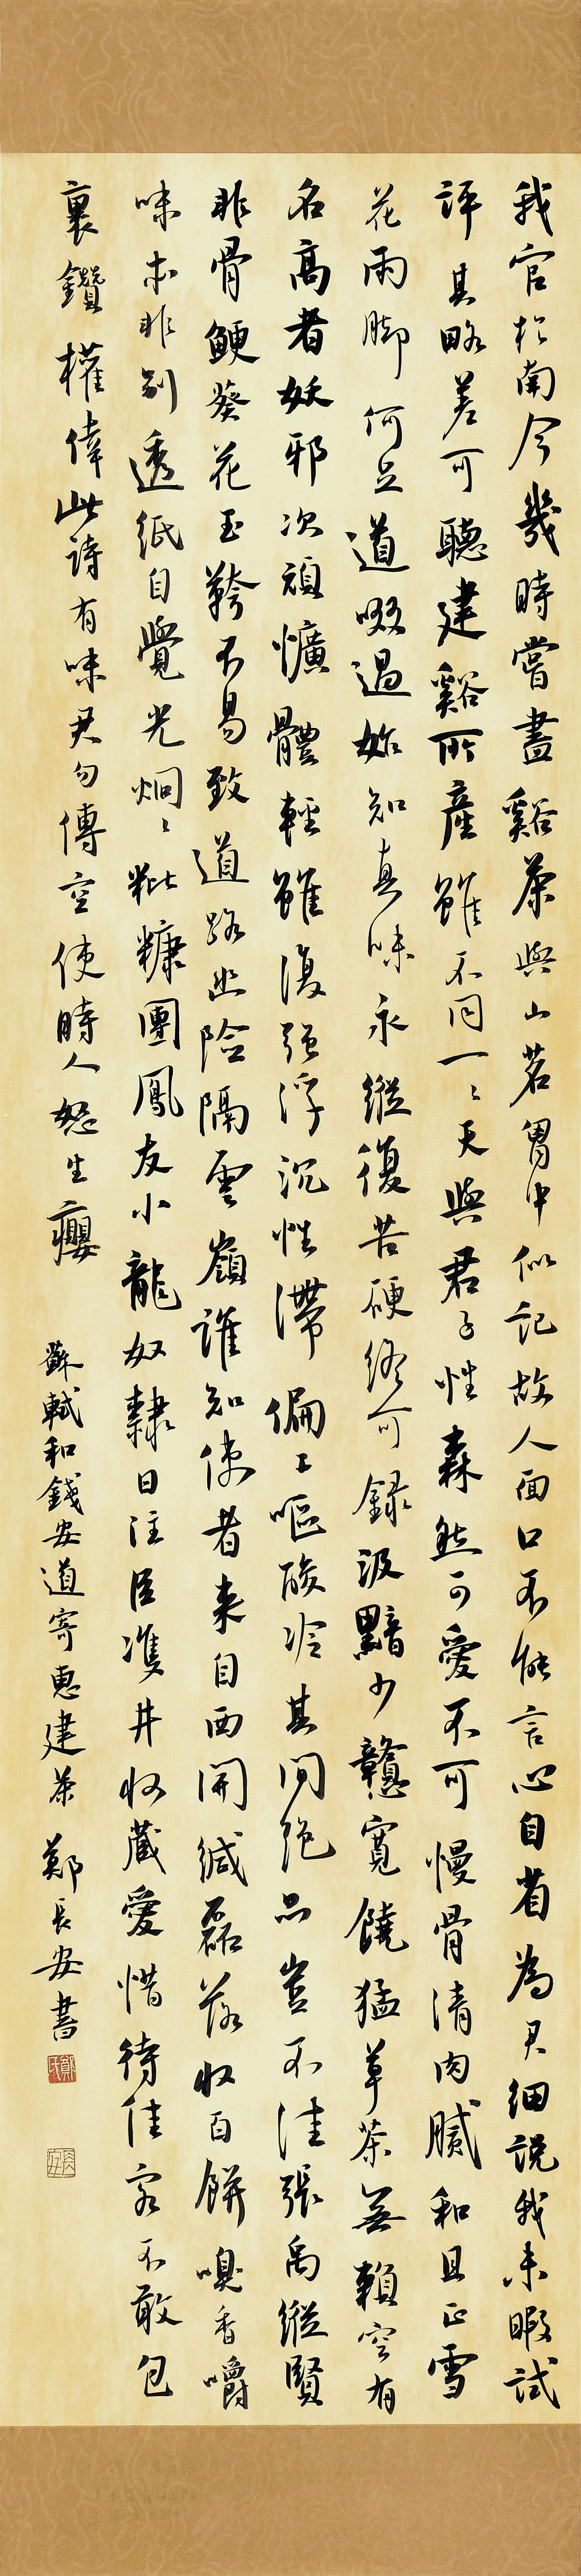 我官於南今幾時嘗盡谿茶與山茗胷中似記故人面口不能言心自省為君細說我未暇試
評其略差可聽建谿所產雖不同一々天與君子性森然可愛不可慢骨清肉膩和且正雪
花雨脚何足道啜過始知真味永縱復苦硬終可録汲黯少戇寬饒猛草茶無賴空有
名高者妖邪次頑懭體輕雖復強浮沉性滯偏工嘔酸冷其間絕品豈不佳張禹縱賢
非骨鯁葵花玉䩭不易致道路幽險隔雲嶺誰知使者來自西開緘磊落收百餅嗅香嚼
味本非別透紙自覺光炯々粃糠團鳳友小龍奴隸日注臣雙井收藏愛惜待佳客不敢包
裹鑽權倖此詩有味君勿傳空使時人怒生癭 蘇軾和錢安道寄惠建茶 鄭長安書
鄭氏
長安